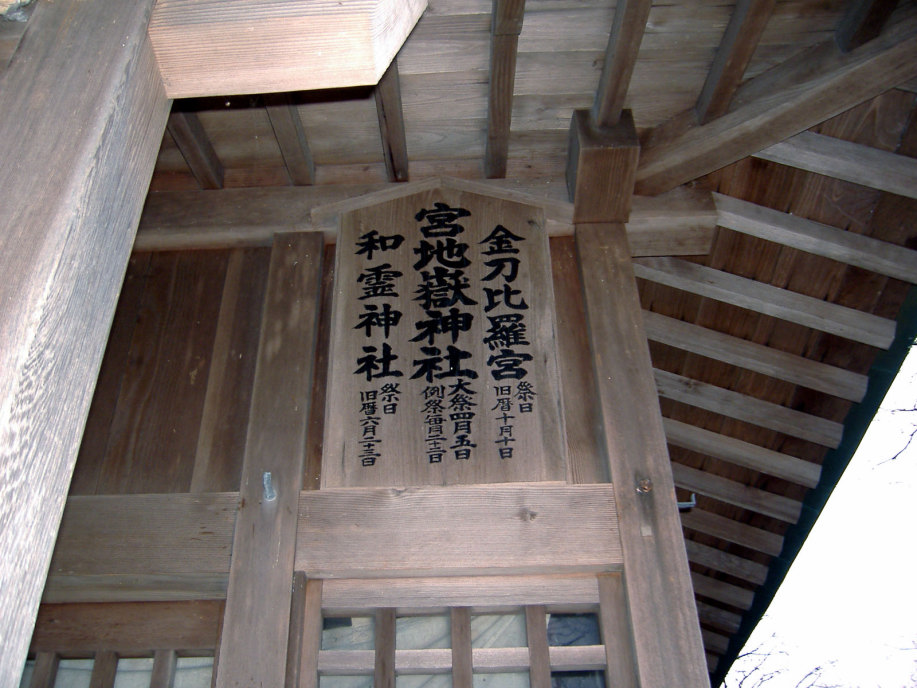 金刀比羅宮
祭日
旧暦十月十日
宮地嶽神社
大祭四月五日
例祭毎月二十二日
和霊神社
祭日
旧暦六月二十三日